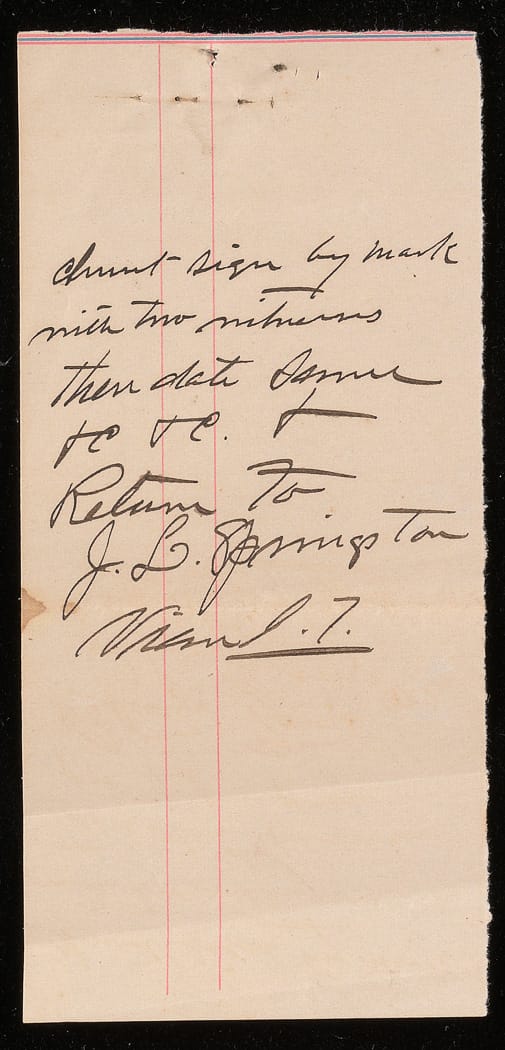 sign by mark
with two witnesses
then date same
&c &c. &
Return to
J. L. Springston
Vian I. T.